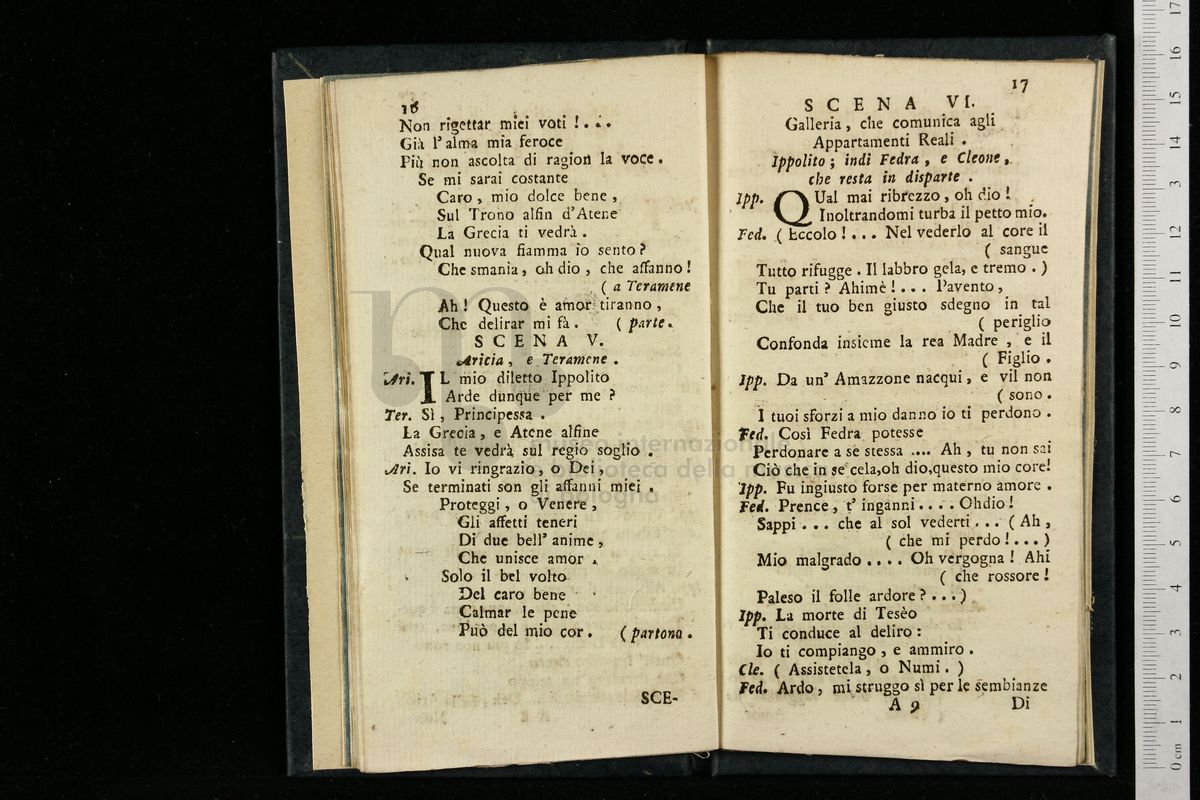 16
Non rigettar miei voti !...
Già l'alma mia feroce
Più non ascolta di ragion la voce.
Se mi sarai costante
Caro, mio dolce bene,
Sul Trono alfin d'Atene
La Grecia ti vedrà.
Qual nuova fiamma io sento?
Che smania, oh dio, che affanno!
( a Teramene
Ah! Questo è amor tiranno,
Che delirar mi fà. ( parte.
SCENA V.
Aricia, e Teramene.
Ari. IL mio diletto Ippolito
Arde dunque per me?
Ter. Sì, Principessa.
La Grecia, e Atene alfine
Assisa te vedrà sul regio soglio.
Ari. Io vi ringrazio, o Dei,
Se terminati son gli affanni miei.
Proteggi, o Venere,
Gli affetti teneri
Di due bell' anime,
Che unisce amor.
Solo il bel volto
Del caro bene
Calmar le pene
Può del mio cor. ( partono.
SCE-
17
SCENA VI.
Galleria, che comunica agli
Appartamenti Reali.
Ippolito; indi Fedra, e Cleone,
che resta in disparte.
Ipp. QUal mai ribrezzo, oh dio!
Inoltrandomi turba il petto mio.
Fed. ( Eccolo!... Nel vederlo al core il
( sangue
Tutto rifugge. Il labbro gela, e tremo.)
Tu parti? Ahimè!... Pavento,
Che il tuo ben giusto sdegno in tal
( periglio
Confonda insieme la rea Madre, e il
( Figlio.
Ipp. Da un' Amazzone nacqui, e vil non
( sono.
I tuoi sforzi a mio danno io ti perdono.
Fed. Così Fedra potesse
Perdonare a sè stessa .... Ah, tu non sai
Ciò che in se cela,oh dio,questo mio core!
Ipp. Fu ingiusto forse per materno amore.
Fed. Prence, t' inganni.... Ohdio!
Sappi... che al sol vederti... ( Ah,
( che mi perdo!...)
Mio malgrado.... Oh vergogna! Ahi
( che rossore!
Paleso il folle ardore?...)
Ipp. La morte di Tesèo
Ti conduce al deliro:
Io ti compiango, e ammiro.
Cle. ( Assistetela, o Numi.)
Fed. Ardo, mi struggo sì per le sembianze
A 9 Di
museo internazionale
biblioteca della musica
bologna
0 cm 1 2 3 4 5 6 7 8 9 10 11 12 13 14 15 16 17